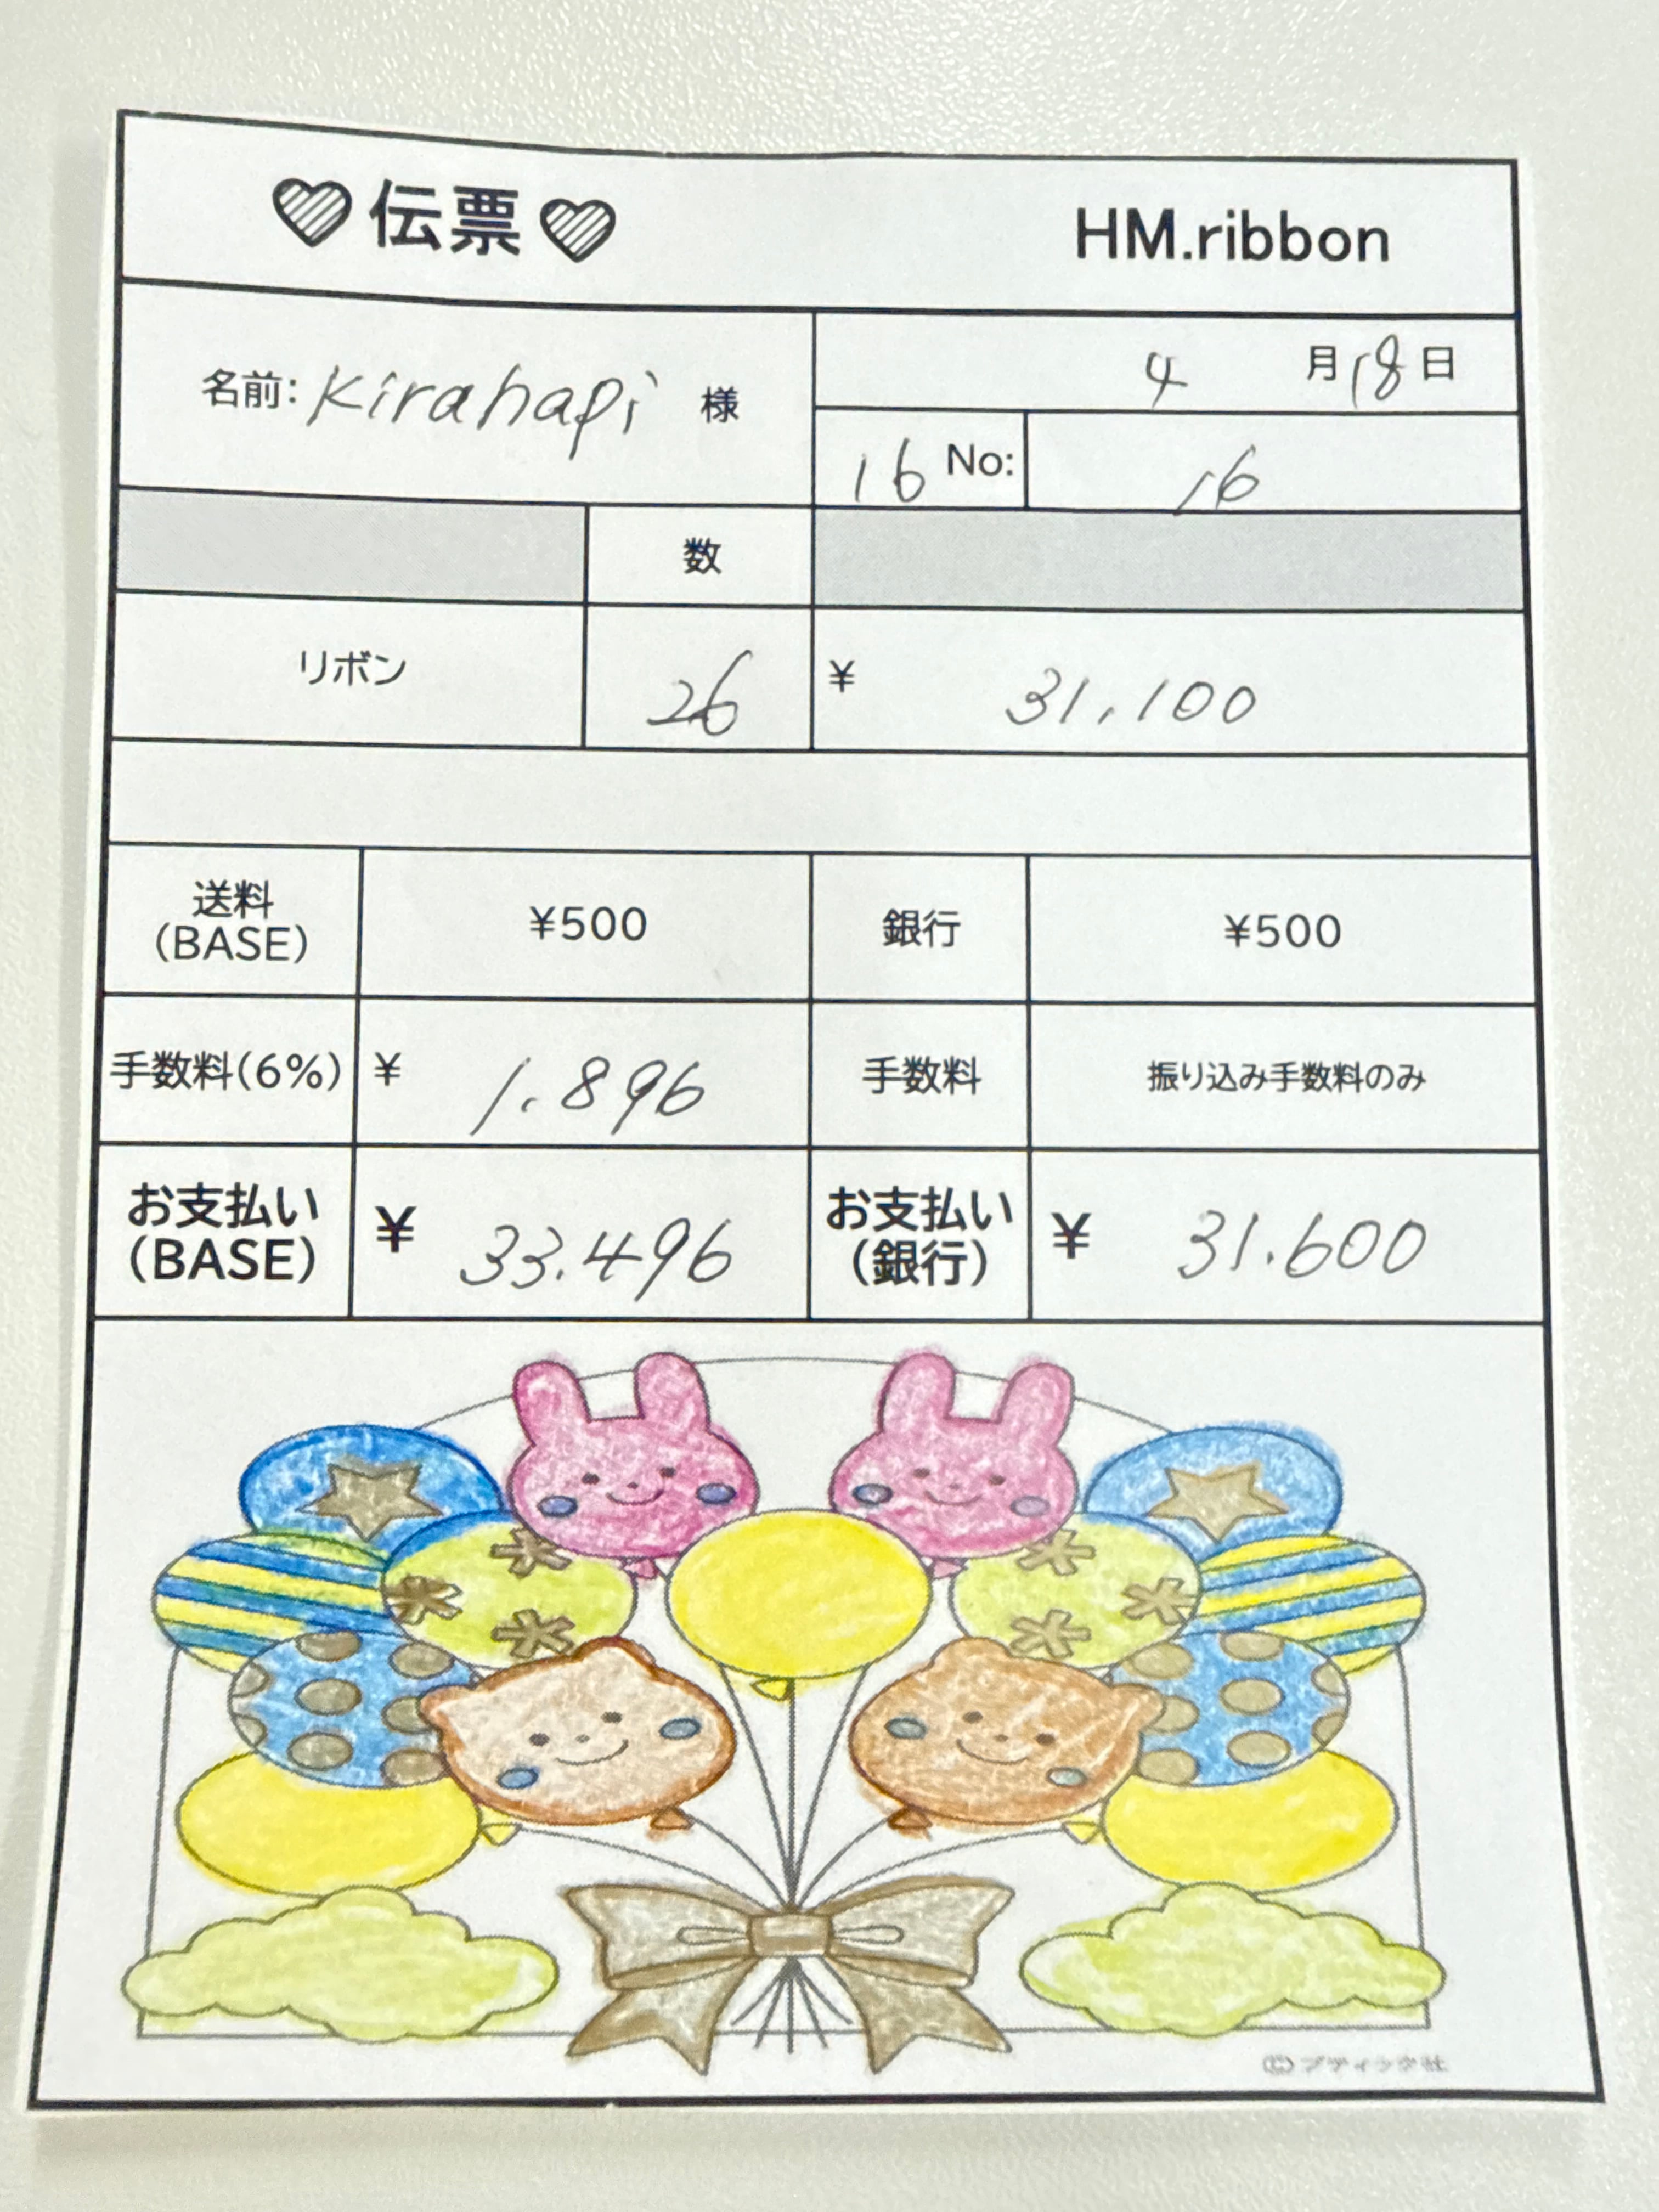 伝票 HM.ribbon
名前: Kirahapi 様
4月18日
16 No: 16
数
リボン 26 ¥ 31,100
送料(BASE) ¥500 銀行 ¥500
手数料(6%) ¥ 1.896 手数料 振り込み手数料のみ
お支払い(BASE) ¥ 33.496 お支払い(銀行) ¥ 31.600
©ブティック社